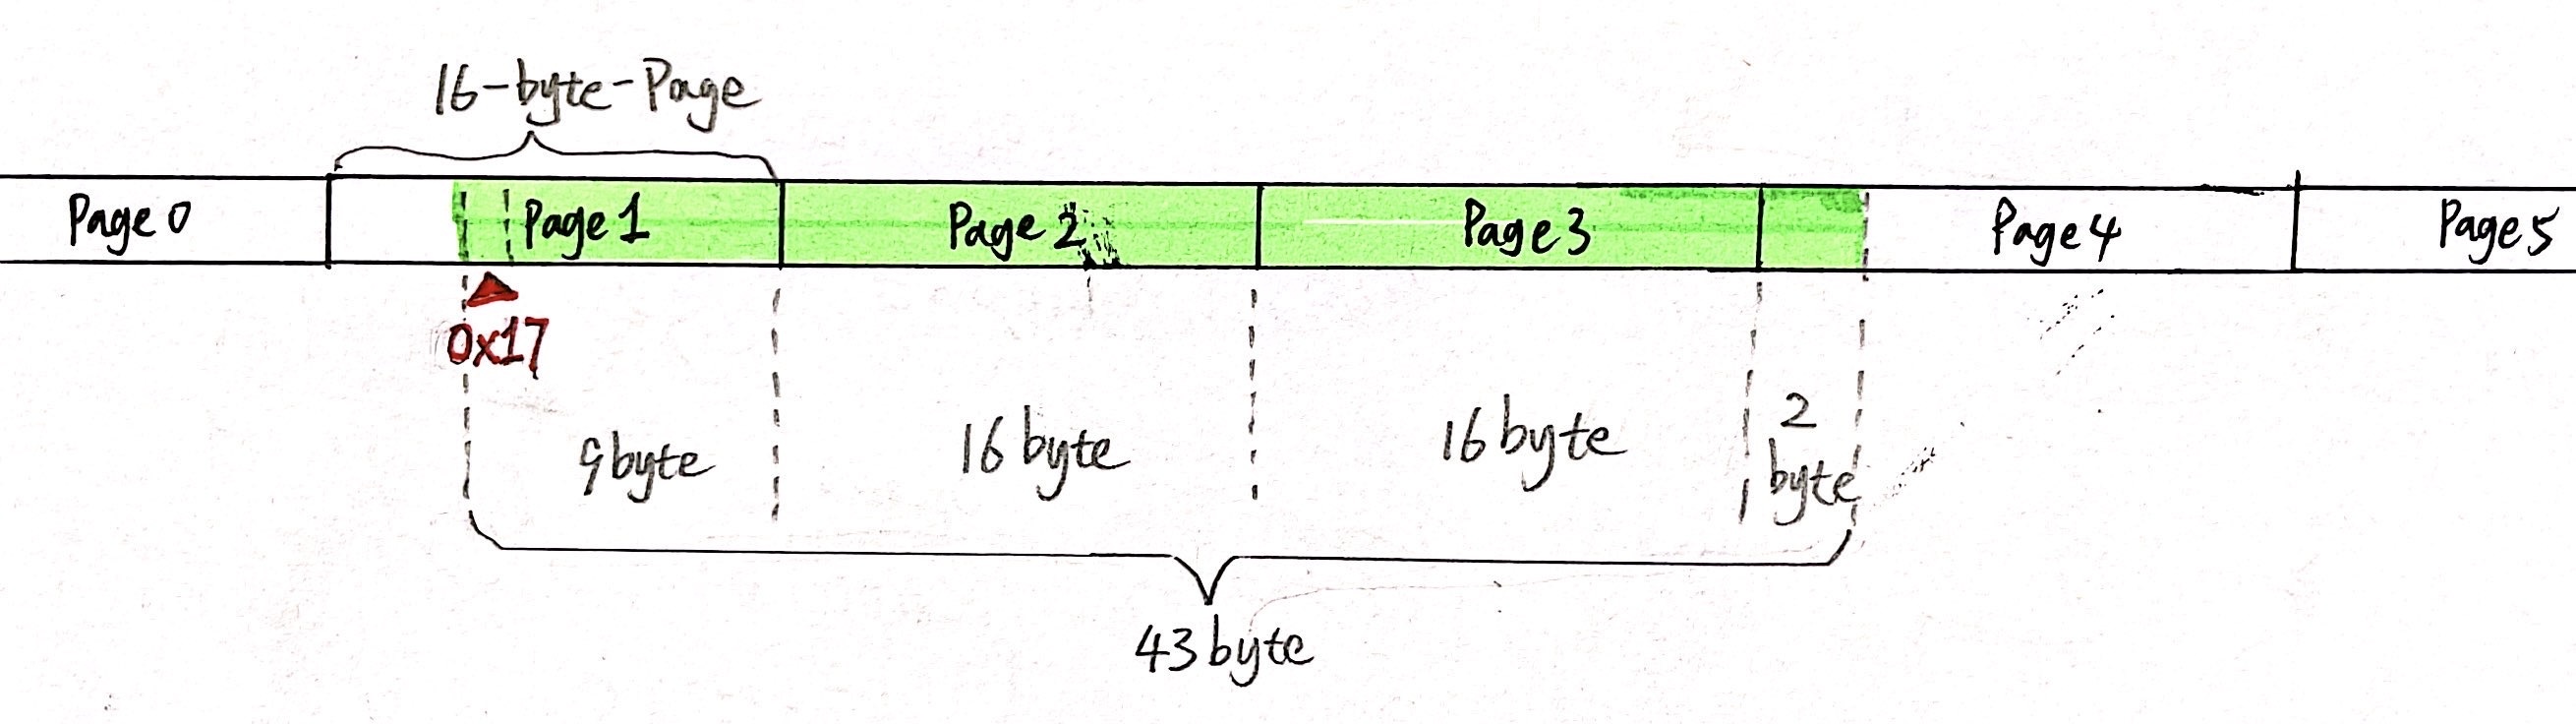 16-byte-Page
Page 0
Page 1
Page 2
Page 3
Page 4
Page 5
0x17
9byte
16 byte
16 byte
2
byte
43 byte